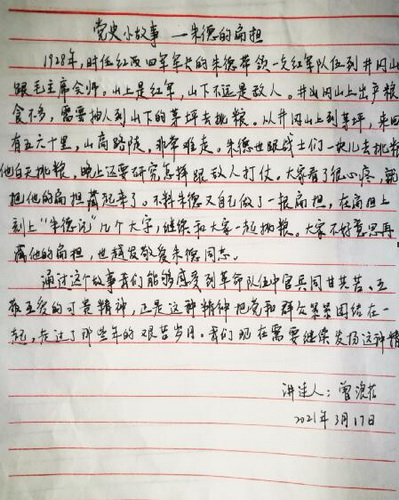 党史小故事 —朱德的扁担
1928年,时任红四军军长的朱德带领一支红军队伍到井冈山
跟毛主席会师。山上是红军,山下不远是敌人。井冈山上出产粮
食不多,需要抽人到山下的茅坪去挑粮。从井冈山上到茅坪,来回
有五六十里,山高路陡,非常难走。朱德也跟战士们一块儿去挑粮
他白天挑粮,晚上还要研究怎样跟敌人打仗。大家看了很心疼,就
把他的扁担藏起来了。不料朱德又自己做了一根扁担,在扁担上
刻上“朱德记”几个大字,继续和大家一起挑粮。大家不好意思再
藏他的扁担,也越发敬爱朱德同志。
通过这个故事我们能够感受到革命队伍中官兵同甘共苦、互
敬互爱的可贵精神,正是这种精神把党和群众紧紧团结在一
起,走过了那些年的艰苦岁月。我们现在需要继续发扬这种精
讲述人:曾浪
2021年3月17日